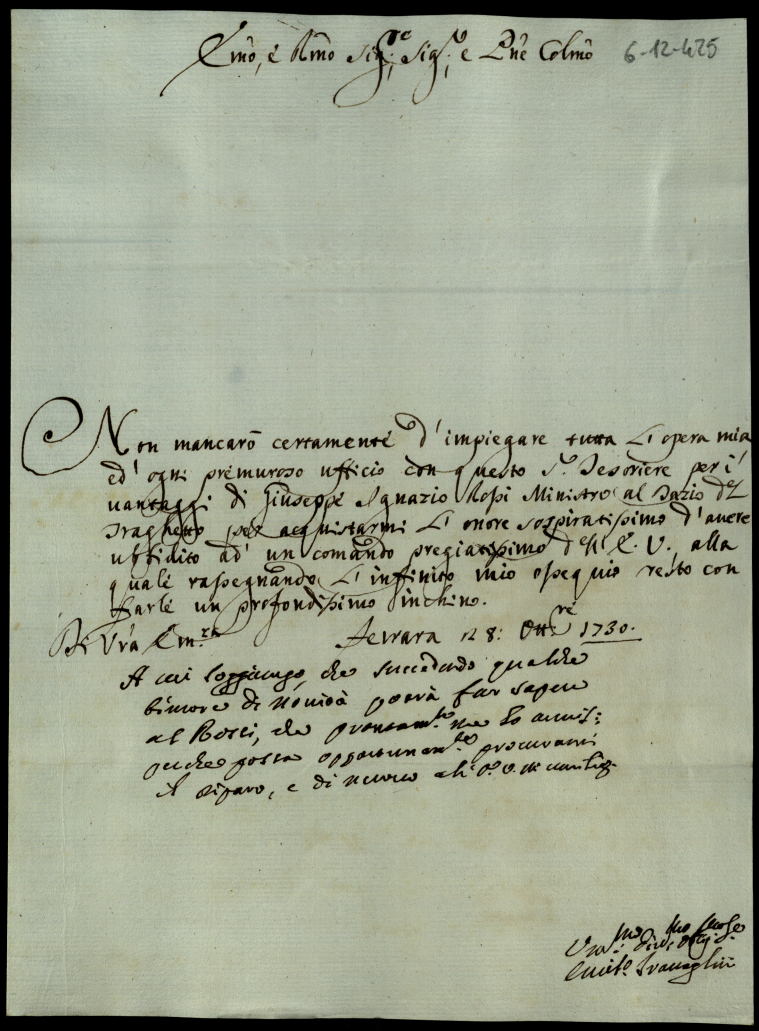 Emo, e Rmo Sig.re, Sig.r, e Pne Colmo 6-12-425
Non mancarò certamente d'impiegare tutta l'opera mia
ed' ogni premuroso ufficio con questo S.r Tesoriere per i'
vantaggi di Giuseppe Ignazio Rossi Ministro al Dazio del
Traghetto per acquistarmi l'onore sospiratissimo d'avere
ubbidito ad' un comando pregiatissimo dell' E. V., alla
quale rassegnando l'infinito mio ossequio resto con
farle un profondissimo inchino.
Di Vra Em.za Ferrara 28: Ott.re 1730.
A cui soggiungo, che succedendo qualche
timore di novità potrà far sapere
al Rossi, che prontam.te me lo avvisi
perche possa opportunam.te procurarvi
il riparo, e di nuovo